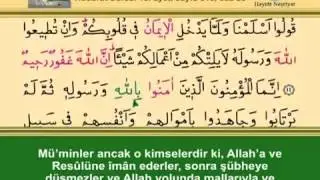 Hayrât Neşriyat
قُولُوا أَسْلَمْنَا وَلَمَّا يَدْخُلِ الْإِيمَانُ فِي قُلُوبِكُمْ وَإِنْ تُطِيعُوا
اللّٰهَ وَرَسُولَهُ لَا يَلِتْكُمْ مِنْ أَعْمَالِكُمْ شَيْئًا إِنَّ اللّٰهَ غَفُورٌ رَحِيمٌ
﴿١٤﴾ إِنَّمَا الْمُؤْمِنُونَ الَّذِينَ آمَنُوا بِاللّٰهِ وَرَسُولِهِ ثُمَّ لَمْ
يَرْتَابُوا وَجَاهَدُوا بِأَمْوَالِهِمْ وَأَنْفُسِهِمْ فِي سَبِيلِ
Mü'minler ancak o kimselerdir ki, Allah'a ve
Resûlüne îmân ederler, sonra şübheye
düşmezler ve Allah yolunda mallarıyla ve